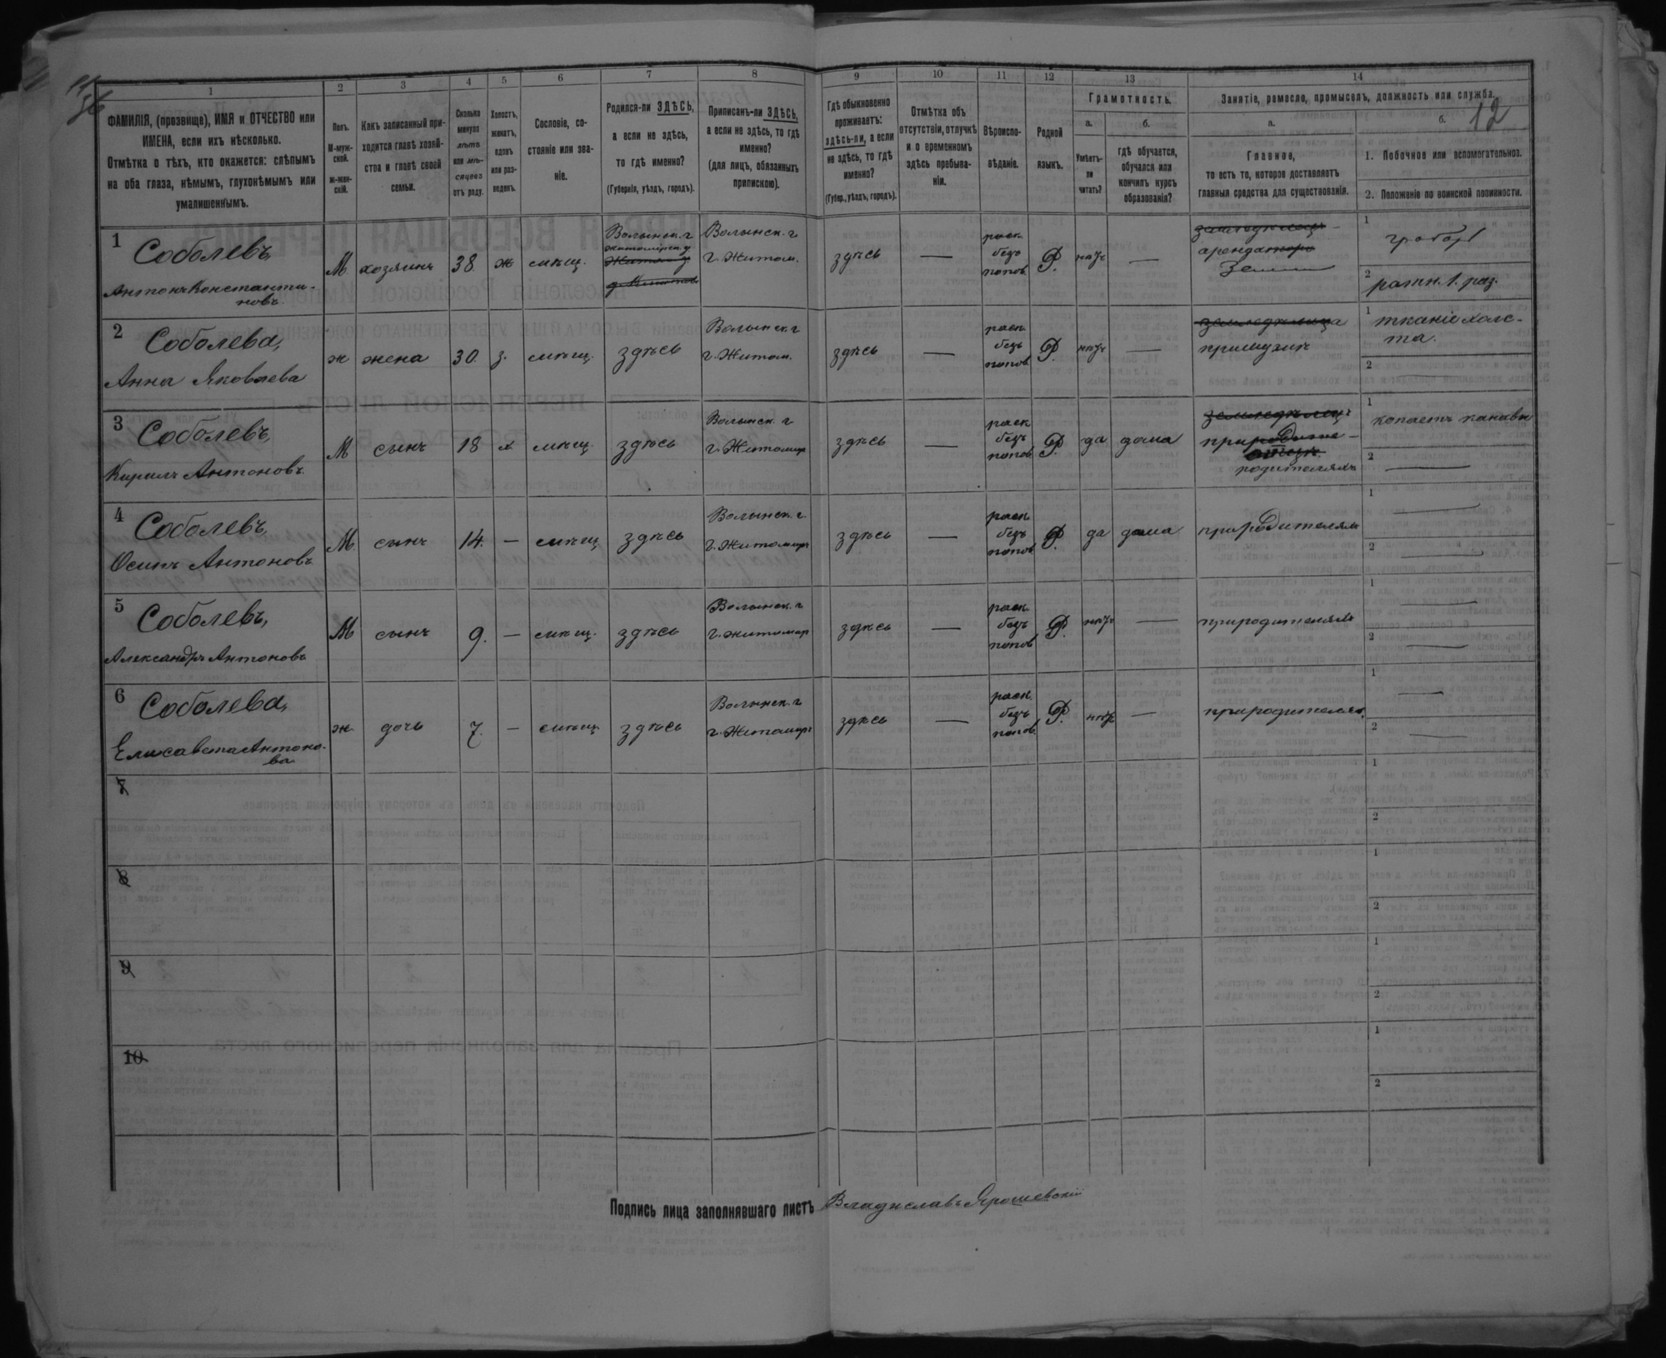 12
1 2 3 4 5 6 7 8 9 10 11 12 13 14
ФАМИЛІЯ, (прозвище), ИМЯ и ОТЧЕСТВО или
ИМЕНА, если ихъ нѣсколько.
Отмѣтка о тѣхъ, кто окажется: слѣпымъ
на оба глаза, нѣмымъ, глухонѣмымъ или
умалишеннымъ.
Полъ.
М-муж-
ской.
ж-жен-
скій.
Какъ записанный при-
ходится главѣ хозяй-
ства и главѣ своей
семьи.
Сколько
минуло
лѣтъ
или мѣ-
сяцевъ
отъ роду.
Холостъ,
женатъ,
вдовъ
или раз-
веденъ.
Сословіе, со-
стояніе или зва-
ніе.
Родился-ли ЗДѢСЬ,
а если не здѣсь,
то гдѣ именно?
(Губернія, уѣздъ, городъ).
Приписанъ-ли ЗДѢСЬ,
а если не здѣсь, то гдѣ
именно?
(для лицъ, обязанныхъ
припискою).
Гдѣ обыкновенно
проживаетъ:
здѣсь-ли, а если
не здѣсь, то гдѣ
именно?
(Губер., уѣздъ, городъ).
Отмѣтка объ
отсутствіи, отлучкѣ
и о временномъ
здѣсь пребыва-
ніи.
Вѣроиспо-
вѣданіе.
Родной
языкъ.
Грамотность.
а.
Умѣетъ-
ли
читать?
б.
гдѣ обучается,
обучался или
кончилъ курсъ
образованія?
Занятіе, ремесло, промыселъ, должность или служба.
а.
Главное,
то есть то, которое доставляетъ
главныя средства для существованія.
б.
1. Побочное или вспомогательное.
2. Положеніе по воинской повинности.
1 Соболевъ
Антонъ Константи-
новъ
М хозяинъ 38 ж мѣщ.
Волынск. г
Волынск. г
г. Житом.
здѣсь —
раск.
безъ
попов
Р. нѣтъ —
арендаторъ
земли
1
2 ратн. 1. раз.
2 Соболева,
Анна Яковлева
ж жена 30 з. мѣщ. здѣсь
Волынск. г
г. Житом.
здѣсь —
раск.
безъ
попов
Р. нѣтъ —
при мужѣ
1 тканіе холс-
та.
2 —
3 Соболевъ,
Кирилъ Антоновъ
М сынъ 18 х мѣщ здѣсь
Волынск. г
г. Житомир
здѣсь —
раск
безъ
попов
Р. да дома
при
родителяхъ
1 копаетъ канавы
2 —
4 Соболевъ,
Осипъ Антоновъ
М сынъ 14. — мѣщ здѣсь
Волынск. г.
г. Житомиръ
здѣсь —
раск
безъ
попов
Р. да дома при родителям
1 —
2 —
5 Соболевъ,
Александръ Антоновъ
М сынъ 9. — мѣщ. здѣсь
Волынск. г
г. Житомир
здѣсь —
раск
безъ
попов
Р. нѣтъ — при родителямъ
1 —
2 —
6 Соболева,
Елисавета Антоно-
ва
ж. дочь 7. — мѣщ. здѣсь
Волынск. г
г. Житомиръ
здѣсь —
раск.
безъ
попов.
Р. нѣтъ — при родителях.
1 —
2 —
7
1
2
8
1
2
9
1
2
10
1
2
Подпись лица заполнявшаго листъ Владиславъ Ярошевскій